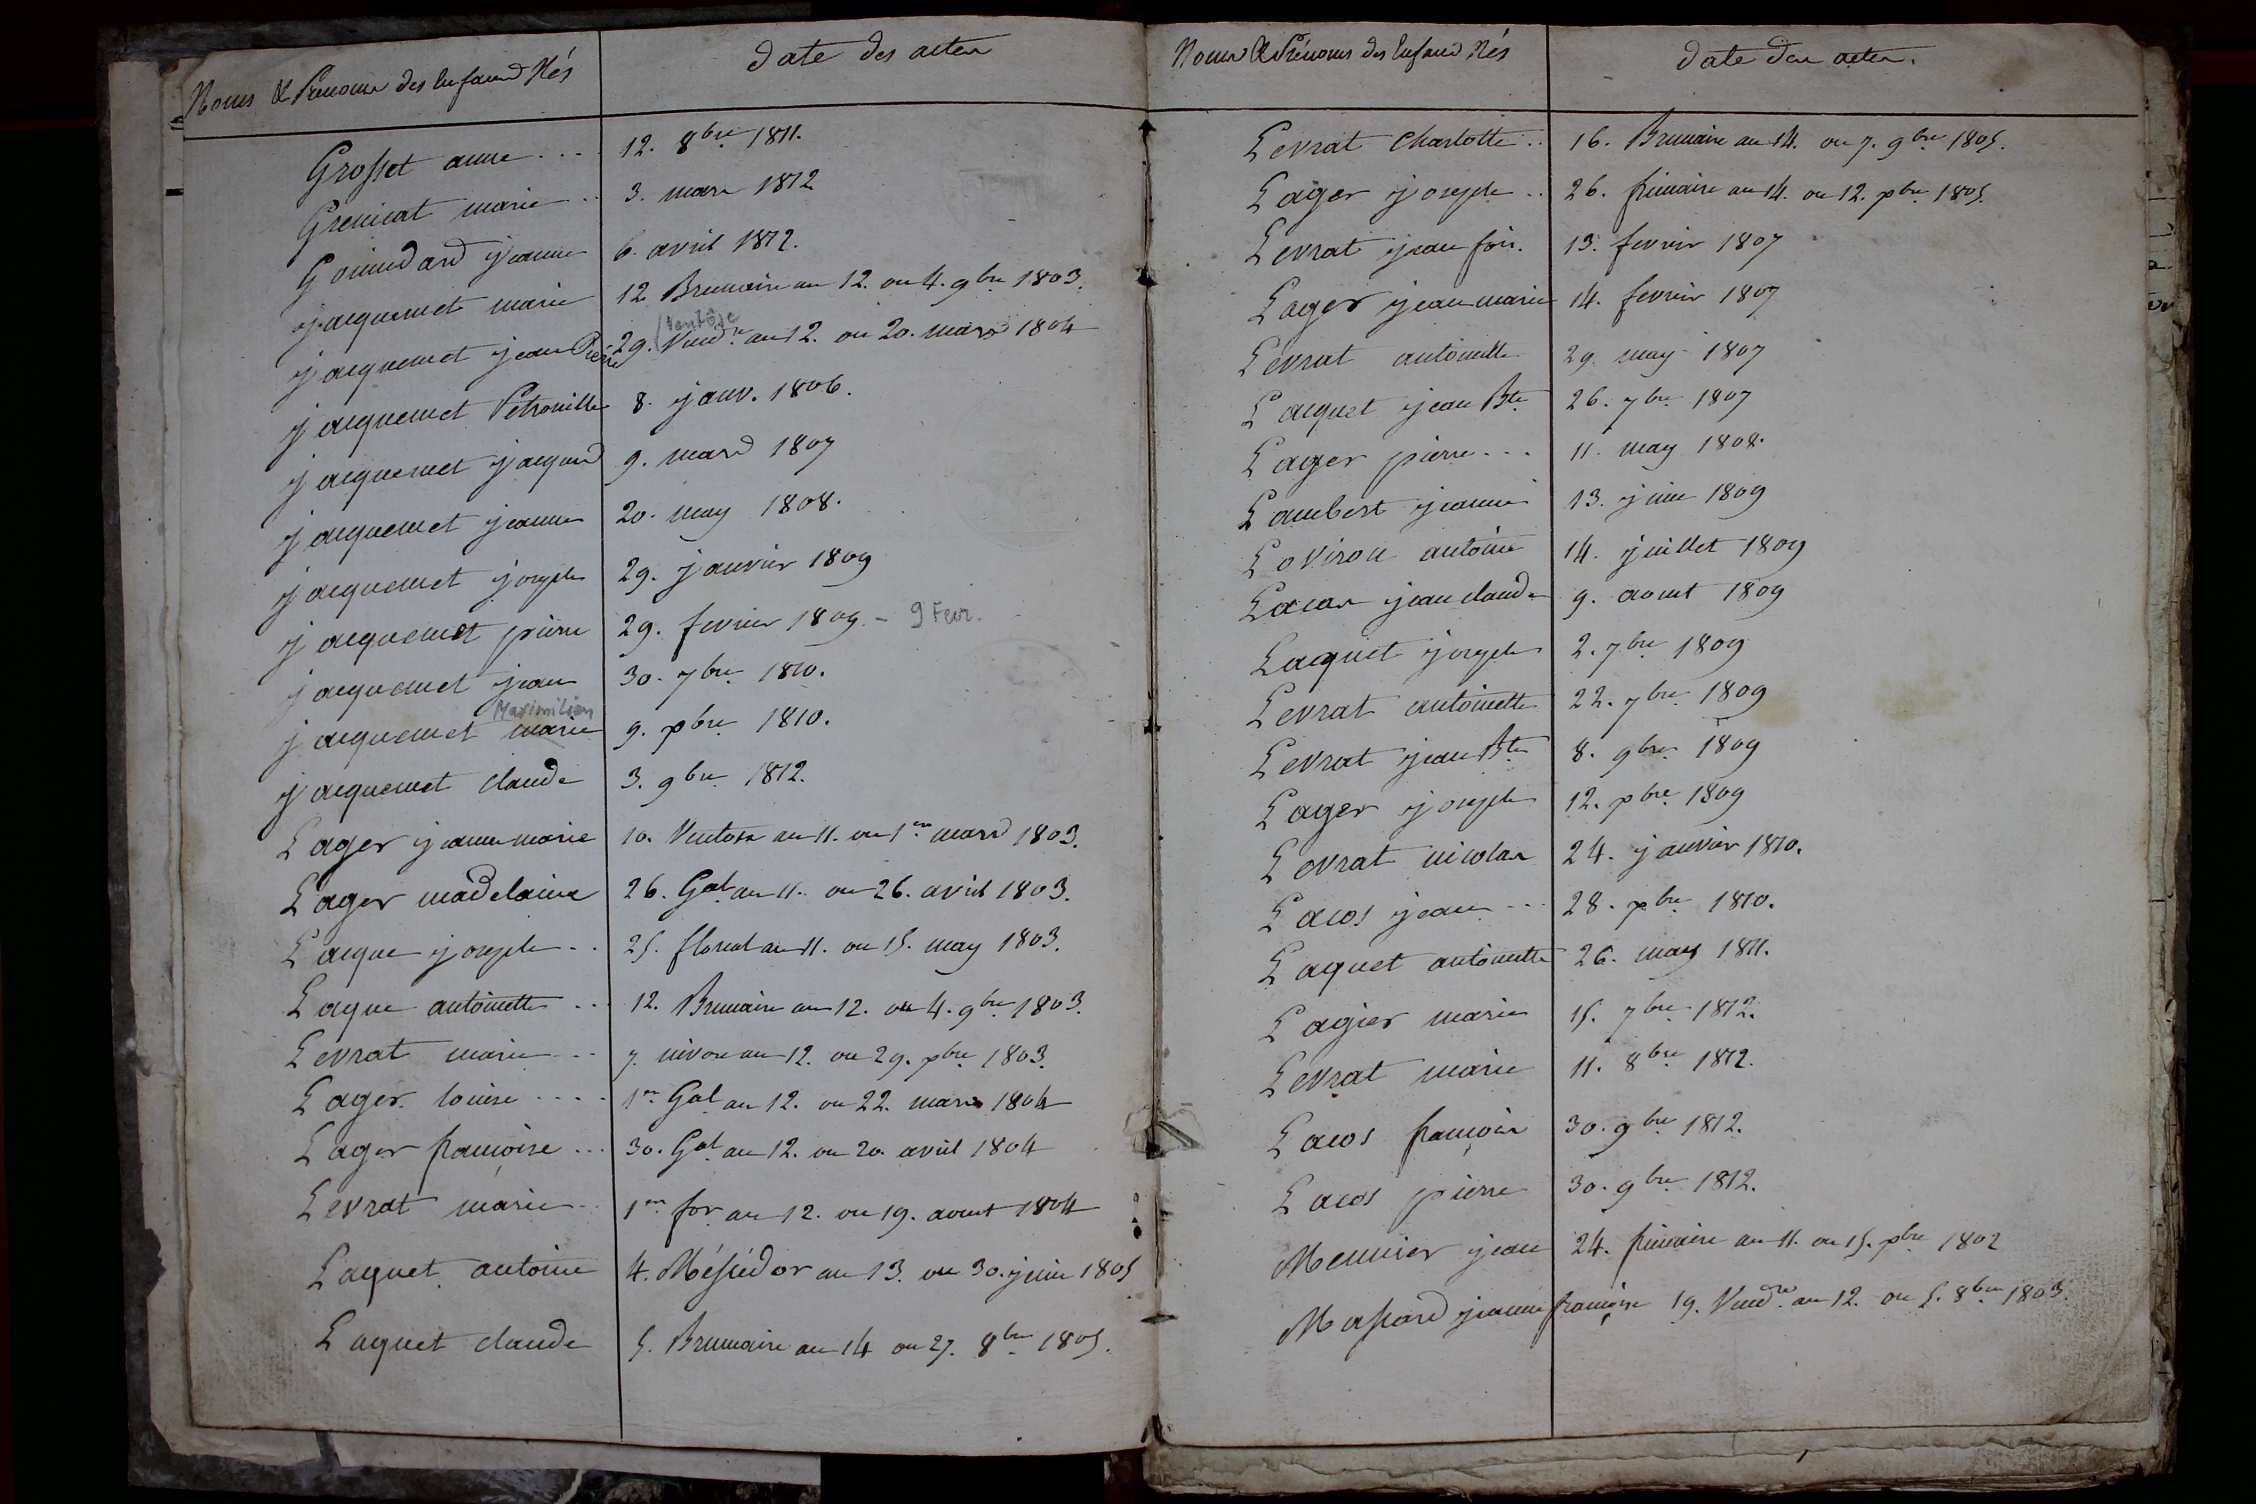 Noms & Prenoms des Enfans Nés date des actes
Grosset anne . . . 12. 8bre 1811.
Greninat marie . . 3. mars 1812
Gonindard jeanne 6. avril 1812.
jacquemet marie 12 Brumaire an 12. ou 4. 9bre 1803.
Ventôse
jacquemet jean Pierre 29. Vend.re an 12. ou 20. mars 1804
jacquemet Petronille 8. janv. 1806.
jacquemet jacques 9. mars 1807
jacquemet jeanne 20. may 1808.
jacquemet joseph 29. janvier 1809
jacquemet pierre 29. fevrier 1809 - 9 Fevr.
jacquemet jean 30. 7bre 1810.
Maximilien
jacquemet marie 9. xbre 1810.
jacquemet claude 3. 9bre 1812.
Lager jeanne marie 10. Ventose an 11. ou 1er mars 1803.
Lager madelaine 26. Gal an 11. ou 26. avril 1803.
Lacque joseph . . 25. floreal an 11. ou 15. may 1803.
Laque antoinette . . . 12. Brumaire an 12. ou 4. 9bre 1803.
Levrat marie . . . 7. nivose an 12. ou 29. xbre 1803.
Lager louise . . . . 1er Gal an 12. ou 22. mars 1804
Lager francoise . . . 30. Gal an 12. ou 20. avril 1804
Levrat marie . . 1er for an 12. ou 19. aout 1804
Laquet antoine 4. Méssidor an 13. ou 30. juin 1805
Laquet claude 5. Brumaire an 14 ou 27. 8bre 1805.
Noms & Prénoms des Enfans Nés date des actes.
Levrat Charlotte . . 16. Brumaire an 14. ou 7. 9bre 1805.
Lager joseph . . 26. frimaire an 14. ou 12. xbre 1805.
Levrat jean fois. 13. fevrier 1807
Lager jean marie 14. fevrier 1807
Levrat antoinette 29. may 1807
Lacquet jean Bte 26. 7bre 1807
Lager pierre . . . 11. may 1808.
Lambert jeanne 13. juin 1809
Loviron antoine 14. juillet 1809
Lacas jean claude 9. aout 1809
Laquet joseph 2. 7bre 1809
Levrat antoinette 22. 7bre 1809
Levrat jean Bte 8. 9bre 1809
Lager joseph 12. xbre 1809
Levrat nicolas 24. janvier 1810.
Lacos jean . . . 28. xbre 1810.
Laquet antoinette 26. may 1811.
Lagier marie 15. 7bre 1812.
Levrat marie 11. 8bre 1812.
Lacos françois 30. 9bre 1812.
Lacos pierre 30. 9bre 1812.
Meunier jean 24. frimaire an 11. ou 15. xbre 1802
Massard jeanne françoise 19. Vend.re an 12. ou 5. 8bre 1803.